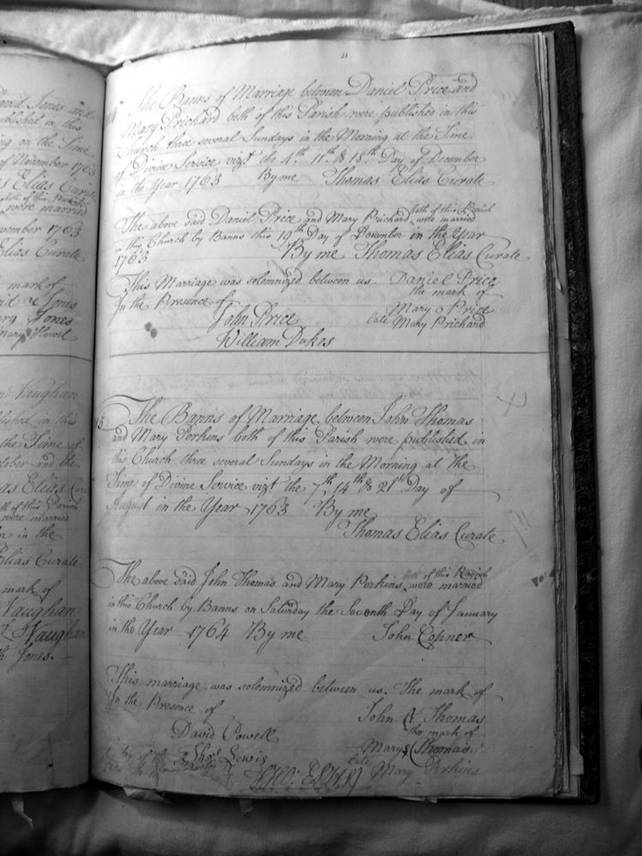 David Jones and
published in this
on the Time
of November 1763
Elias Cur
were married
vember 1763
Elias Curate
mark of
Jones
Jones
Mary Howel
Vaughan
blished in this
the Time of
tober and the
as Elias Cur
of this Parish
were married
in the
Elias Curate
mark of
Vaughan
Vaughan
Jones.
The Banns of Marriage between Daniel Price and
Mary Prichard both of this Parish were published in this
Church three several Sundays in the Morning at the Time
of Divine Service vizt the 4th 11th & 18th Day of December
in the Year 1763 By me Thomas Elias Curate
The above said Daniel Price and Mary Prichard both of this Parish were married
in this Church by Banns this 19th Day of December in the Year
1763 By me Thomas Elias Curate
This Marriage was solemnized between us Daniel Price
In the Presence of the mark of
Mary Price
John Price late Mary Prichard
William Dukes
The Banns of Marriage between John Thomas
and Mary Perkins both of this Parish were published in
this Church three several Sundays in the Morning at the
Time of Divine Service vizt the 7th 14th & 21st Day of
August in the Year 1763 By me
Thomas Elias Curate
The above said John Thomas and Mary Perkins both of this Parish were married
in this Church by Banns on Saturday the Seventh Day of January
in the Year 1764 By me John Conner
This marriage was solemnized between us. The mark of
In the Presence of John Thomas
the mark of
David Powell Mary Thomas
Lewis late Mary Perkins